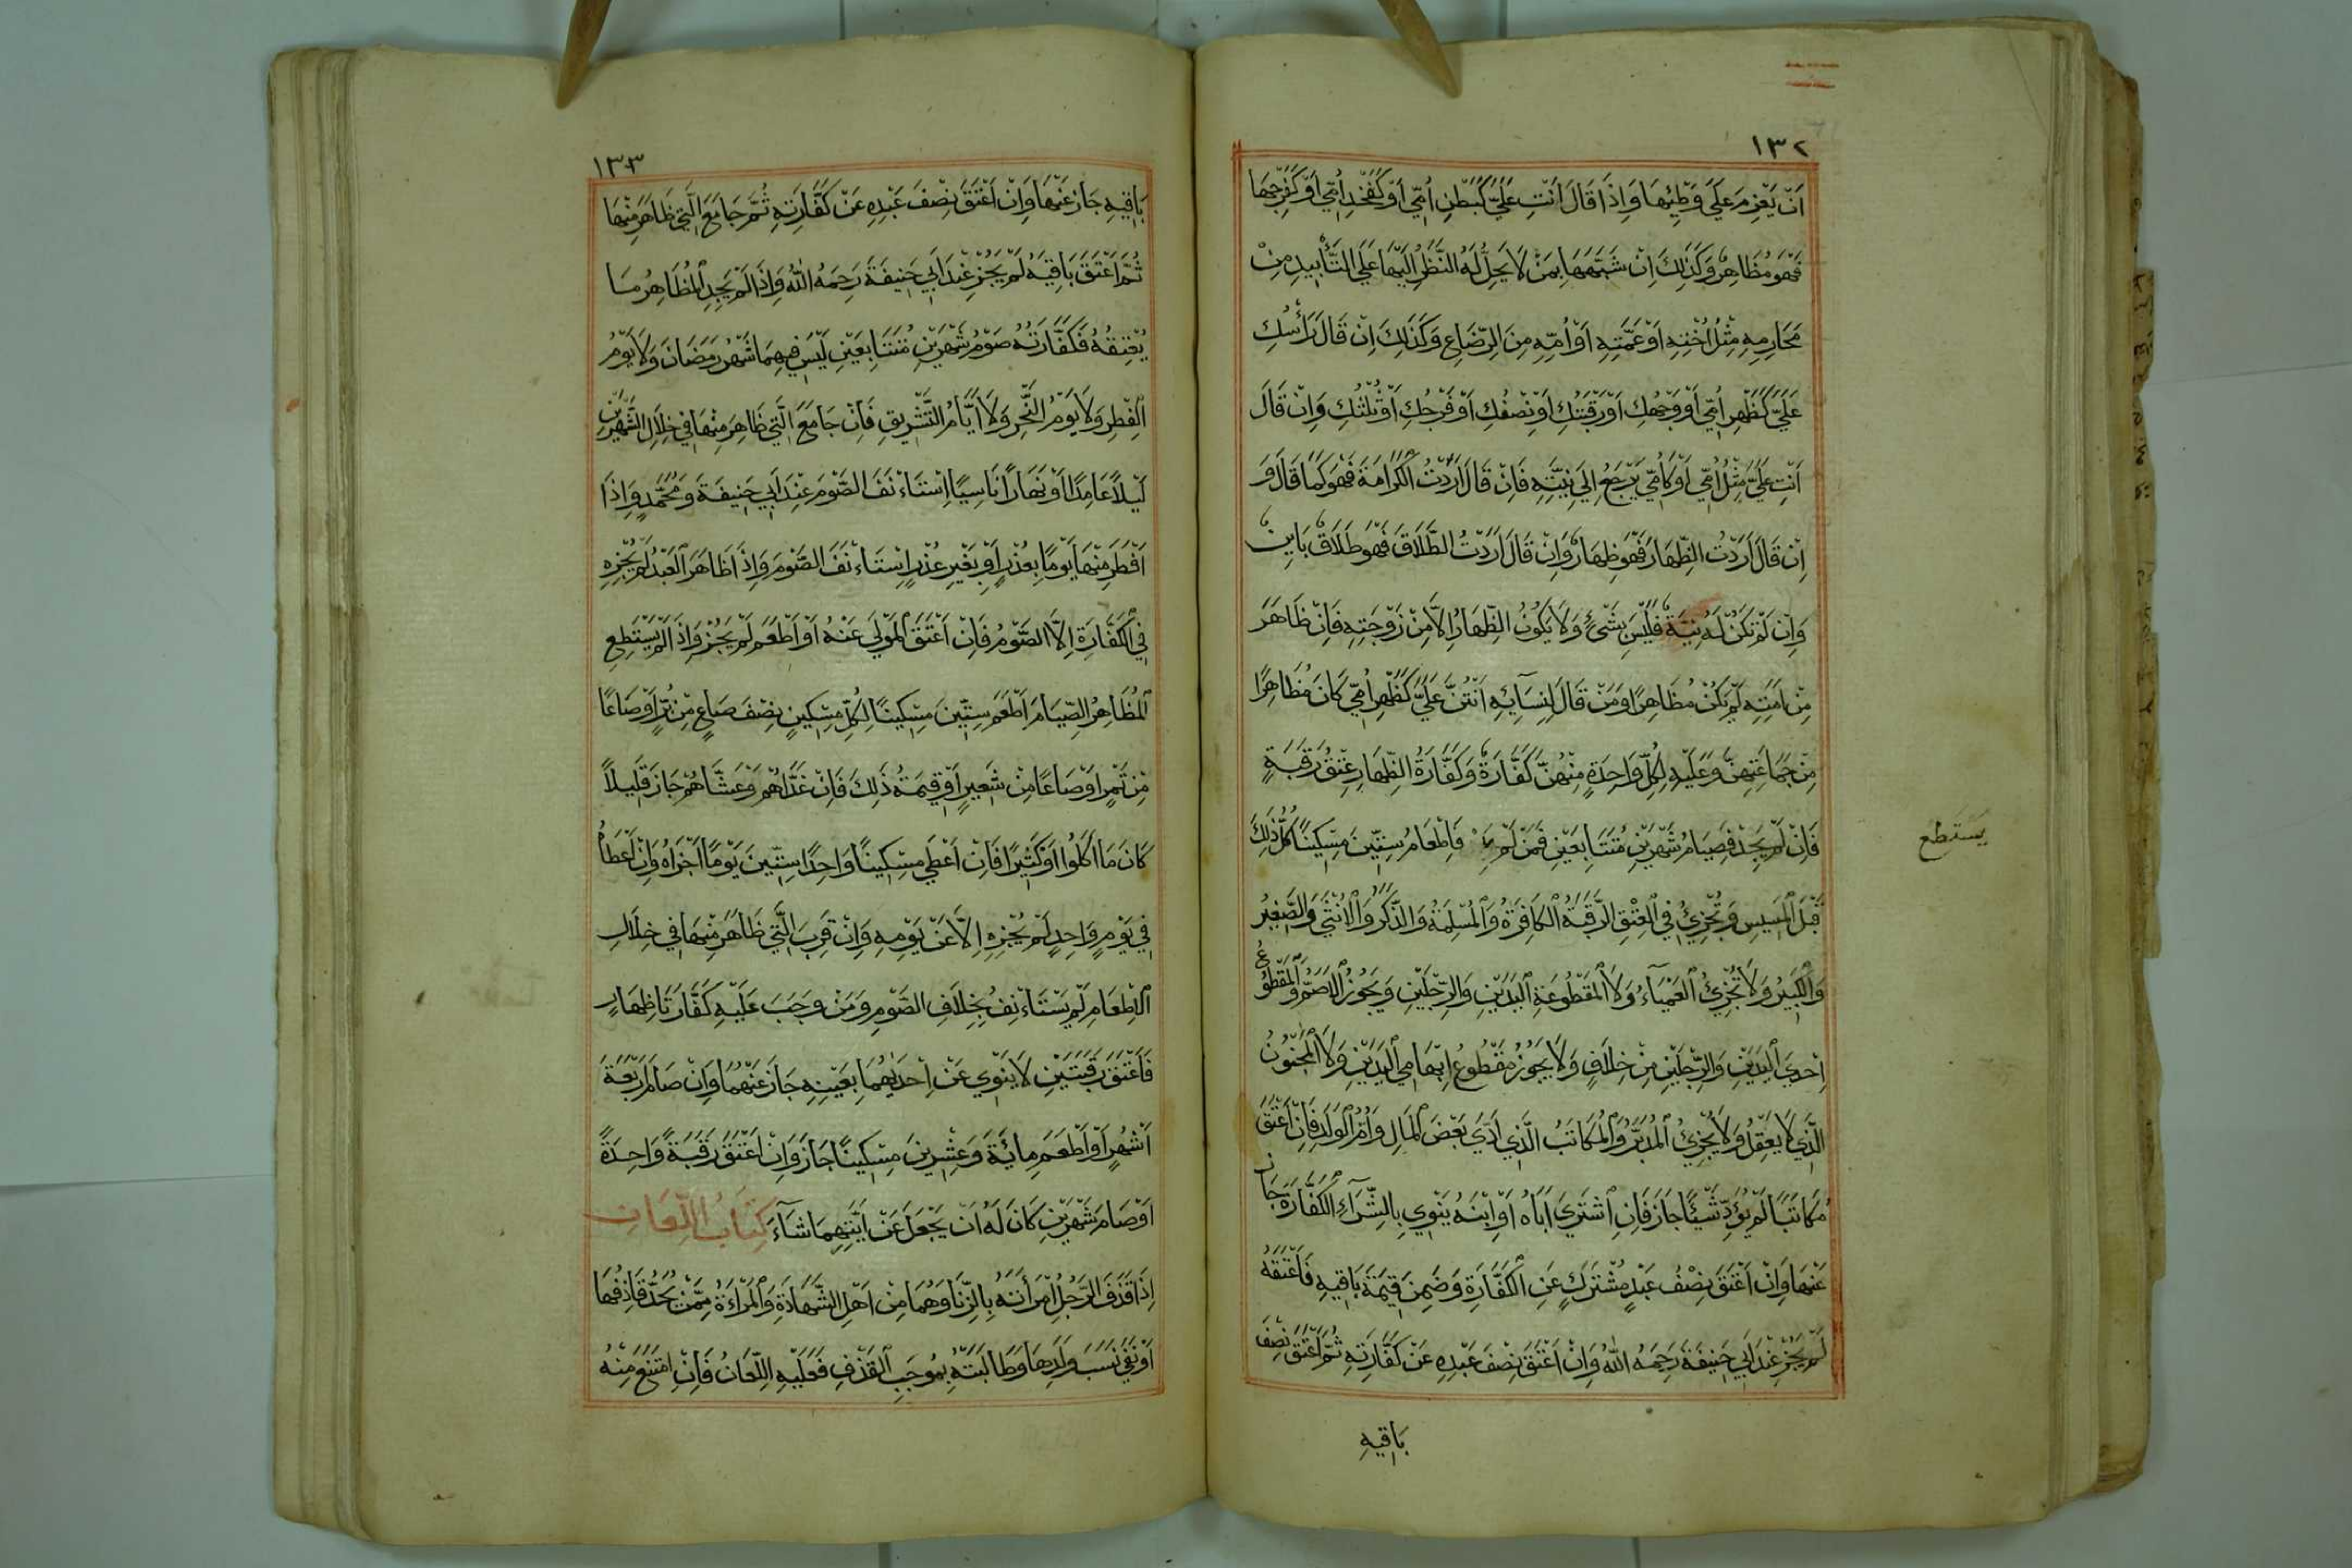 ١٣٢
اَنْ يَعْزِمَ عَلَى وَطْئِهَا وَاِذَا قَالَ اَنْتِ عَلَيَّ كَبَطْنِ اُمِّي اَوْ كَفَخْذِ اُمِّي اَوْ كَفَرْجِهَا
فَهُوَ مُظَاهِرٌ وَكَذٰلِكَ اِنْ شَبَّهَهَا بِمَنْ لَا يَحِلُّ لَهُ النَّظَرُ اِلَيْهَا عَلَى التَّأْبِيدِ مِنْ
مَحَارِمِهِ مِثْلُ اُخْتِهِ اَوْ عَمَّتِهِ اَوْ اُمِّهِ مِنَ الرِّضَاعِ وَكَذٰلِكَ اِنْ قَالَ رَأْسُكِ
عَلَيَّ كَظَهْرِ اُمِّي اَوْ وَجْهُكِ اَوْ رَقَبَتُكِ اَوْ نِصْفُكِ اَوْ فَرْجُكِ اَوْ ثُلْثُكِ وَاِنْ قَالَ
اَنْتِ عَلَيَّ مِثْلُ اُمِّي اَوْ كَاُمِّي يَرْجِعُ اِلَى نِيَّتِهِ فَاِنْ قَالَ اَرَدْتُ الْكَرَامَةَ فَهُوَ كَمَا قَالَ وَ
اِنْ قَالَ اَرَدْتُ الظِّهَارَ فَهُوَ ظِهَارٌ وَاِنْ قَالَ اَرَدْتُ الطَّلَاقَ فَهُوَ طَلَاقٌ بَايِنٌ
وَاِنْ لَمْ تَكُنْ لَهُ نِيَّةٌ فَلَيْسَ بِشَيْئٍ وَلَا يَكُونُ الظِّهَارُ اِلَّا مِنْ زَوْجَتِهِ فَاِنْ ظَاهَرَ
مِنْ اَمَتِهِ لَمْ يَكُنْ مُظَاهِرًا وَمَنْ قَالَ لِنِسَآئِهِ اَنْتُنَّ عَلَيَّ كَظَهْرِ اُمِّي كَانَ مُظَاهِرًا
مِنْ جَمَاعَتِهِنَّ وَعَلَيْهِ لِكُلِّ وَاحِدَةٍ مِنْهُنَّ كَفَّارَةٌ وَكَفَّارَةُ الظِّهَارِ عِتْقُ رَقَبَةٍ
فَاِنْ لَمْ يَجِدْ فَصِيَامُ شَهْرَيْنِ مُتَتَابِعَيْنِ فَمَنْ لَمْ فَاِطْعَامُ سِتِّينَ مِسْكِينًا كُلُّ ذٰلِكَ
يَسْتَطِعْ
قَبْلَ الْمَسِيسِ وَتُجْزِئُ فِي الْعِتْقِ الرَّقَبَةُ الْكَافِرَةُ وَالْمُسْلِمَةُ وَالذَّكَرُ وَالْاُنْثَى وَالصَّغِيرُ
وَالْكَبِيرُ وَلَا تُجْزِئُ الْعَمْيَآءُ وَلَا الْمَقْطُوعَةِ الْيَدَيْنِ وَالرِّجْلَيْنِ وَيَجُوزُ الْاَصَمُّ وَالْمَقْطُوعُ
اِحْدَى الْيَدَيْنِ وَالرِّجْلَيْنِ مِنْ خِلَافٍ وَلَا يَجُوزُ مَقْطُوعُ اِبْهَامِي الْيَدَيْنِ وَلَا الْمَجْنُونُ
الَّذِي لَا يَعْقِلُ وَلَا يُجْزِئُ الْمُدَبَّرُ وَالْمُكَاتَبُ الَّذِي اَدَّى بَعْضَ الْمَالِ وَاُمُّ الْوَلَدِ فَاِنْ اَعْتَقَ
مُكَاتَبًا لَمْ يُؤَدِّ شَيْئًا جَازَ فَاِنِ اشْتَرَى اَبَاهُ اَوْ اِبْنَهُ يَنْوِي بِالشِّرَآءِ الْكَفَّارَةَ جَازَ
عَنْهَا وَاِنْ اَعْتَقَ نِصْفُ عَبْدٍ مُشْتَرَكٍ عَنِ الْكَفَّارَةِ وَضَمِنَ قِيمَةَ بَاقِيهِ فَاَعْتَقَهُ
لَمْ يَجُزْ عِنْدَ اَبِي حَنِيفَةَ رَحِمَهُ اللّٰهُ وَاِنْ اَعْتَقَ نِصْفَ عَبْدِهِ عَنْ كَفَّارَتِهِ ثُمَّ اَعْتَقَ نِصْفَ
بَاقِيهِ
١٣٣
بَاقِيهِ جَازَ عَنْهَا وَاِنْ اَعْتَقَ نِصْفَ عَبْدِهِ عَنْ كَفَّارَتِهِ ثُمَّ جَامَعَ الَّتِي ظَاهَرَ مِنْهَا
ثُمَّ اَعْتَقَ بَاقِيَهُ لَمْ يَجُزْ عِنْدَ اَبِي حَنِيفَةَ رَحِمَهُ اللّٰهُ وَاِذَا لَمْ يَجِدِ الْمُظَاهِرُ مَا
يُعْتِقُهُ فَكَفَّارَتُهُ صَوْمُ شَهْرَيْنِ مُتَتَابِعَيْنِ لَيْسَ فِيهِمَا شَهْرُ رَمَضَانَ وَلَا يَوْمُ
الْفِطْرِ وَلَا يَوْمُ النَّحْرِ وَلَا اَيَّامُ التَّشْرِيقِ فَاِنْ جَامَعَ الَّتِي ظَاهَرَ مِنْهَا فِي خِلَالِ الشَّهْرَيْنِ
لَيْلًا عَامِدًا اَوْ نَهَارًا نَاسِيًا اِسْتَاءْنَفَ الصَّوْمَ عِنْدَ اَبِي حَنِيفَةَ وَمُحَمَّدٍ وَاِذَا
اَفْطَرَ مِنْهَا يَوْمًا بِعُذْرٍ اَوْ بِغَيْرِ عُذْرٍ اِسْتَاءْنَفَ الصَّوْمَ وَاِذَا ظَاهَرَ الْعَبْدُ لَمْ يُجْزِهِ
فِي الْكَفَّارَةِ اِلَّا الصَّوْمُ فَاِنْ اَعْتَقَ الْمَوْلَى عَنْهُ اَوْ اَطْعَمَ لَمْ يَجُزْ وَاِذَا لَمْ يَسْتَطِعِ
الْمُظَاهِرُ الصِّيَامَ اَطْعَمَ سِتِّينَ مِسْكِينًا لِكُلِّ مِسْكِينٍ نِصْفَ صَاعٍ مِنْ بُرٍّ اَوْ صَاعًا
مِنْ تَمْرٍ اَوْ صَاعًا مِنْ شَعِيرٍ اَوْ قِيمَةُ ذٰلِكَ فَاِنْ غَدَّاهُمْ وَعَشَّاهُمْ جَازَ قَلِيلًا
كَانَ مَا اَكَلُوا اَوْ كَثِيرًا فَاِنْ اَعْطَى مِسْكِينًا وَاحِدًا سِتِّينَ يَوْمًا اَجْزَاهُ وَاِنْ اَعْطَاهُ
فِي يَوْمٍ وَاحِدٍ لَمْ يُجْزِهِ اِلَّا عَنْ يَوْمِهِ وَاِنْ قَرِبَ الَّتِي ظَاهَرَ مِنْهَا فِي خِلَالِ
الْاِطْعَامِ لَمْ يَسْتَاءْنِفْ بِخِلَافِ الصَّوْمِ وَمَنْ وَجَبَ عَلَيْهِ كَفَّارَتَا ظِهَارٍ
فَاَعْتَقَ رَقَبَتَيْنِ لَا يَنْوِي عَنْ اِحْدٰيهُمَا بِعَيْنِهِ جَازَ عَنْهُمَا وَاِنْ صَامَ اَرْبَعَةَ
اَشْهُرٍ اَوْ اَطْعَمَ مِائَةَ وَعِشْرِينَ مِسْكِينًا جَازَ وَاِنْ اَعْتَقَ رَقَبَةً وَاحِدَةً
اَوْ صَامَ شَهْرَيْنِ كَانَ لَهُ اَنْ يَجْعَلَ عَنْ اَيَّتِهِمَا شَآءَ كِتَابُ اللِّعَانِ
اِذَا قَذَفَ الرَّجُلُ امْرَأَتَهُ بِالزِّنَا وَهُمَا مِنْ اَهْلِ الشَّهَادَةِ وَالْمَرْاَءَةُ مِمَّنْ يُحَدُّ قَاذِفُهَا
اَوْ نَفَى نَسَبَ وَلَدِهَا وَطَالَبَتْهُ بِمُوجَبِ الْقَذْفِ فَعَلَيْهِ اللِّعَانُ فَاِنِ امْتَنَعَ مِنْهُ